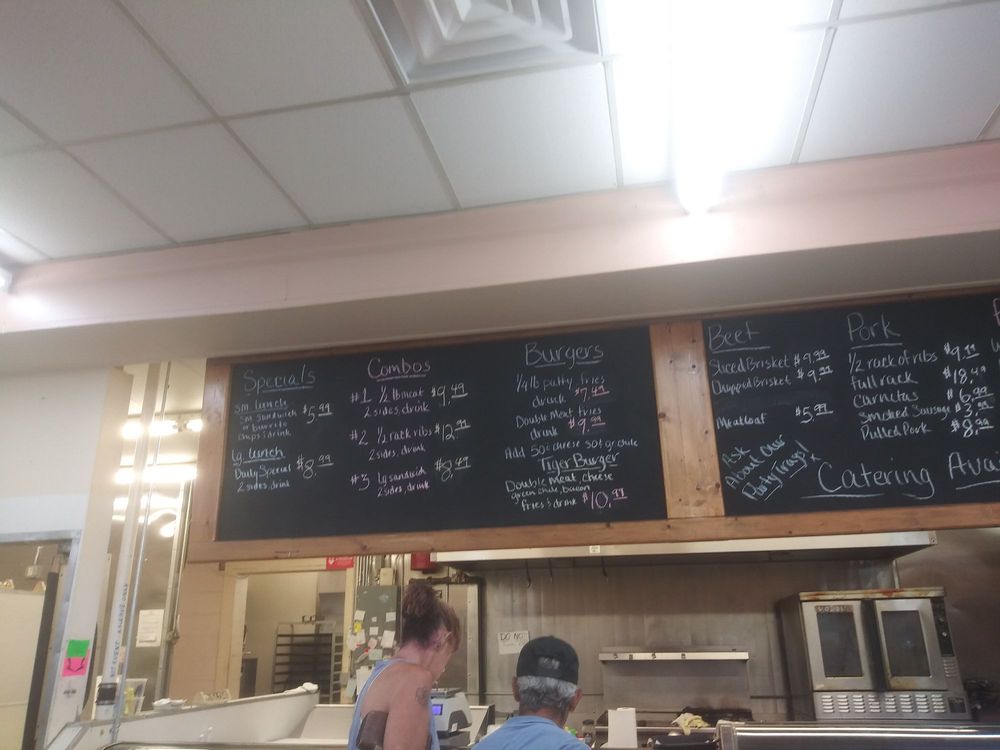 Specials
Sm. Lunch
Sm Sandwich $5.99
or burrito
chips & drink
Lg. Lunch
Daily Special $8.99
2 sides, drink
Combos
#1 1/2 lb meat $9.49
2 sides, drink
#2 1/2 rack ribs $12.99
2 sides, drink
#3 Lg sandwich $8.49
2 sides, drink
Burgers
1/4 lb patty, fries
drink $7.49
Double Meat, fries
drink $9.99
Add 50¢ cheese 50¢ gr chile
Tiger Burger
Double meat, cheese
green chile, bacon
fries & drink $10.99
Beef
Sliced Brisket $9.99
Chopped Brisket $9.99
Meatloaf $5.99
Ask
About Our
Party Trays!
Pork
1/2 rack of ribs $9.99
full rack $18.49
Carnitas $6.99
Smoked Sausage $3.99
Pulled Pork $8.99
Catering Avai
DO NOT